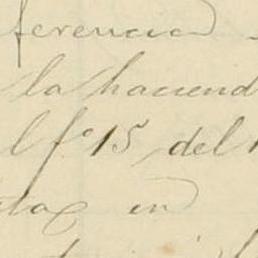 ferencia
la haciend
l fº 15, del
en